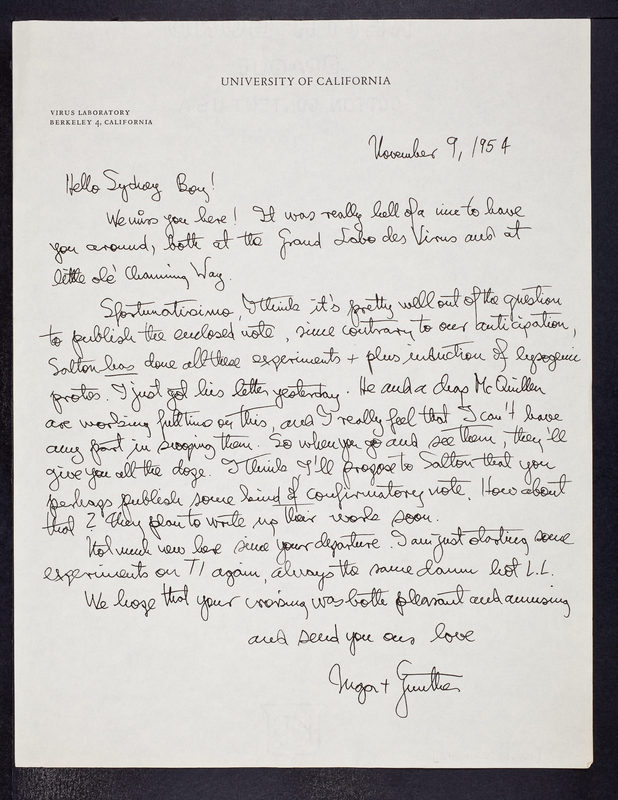 UNIVERSITY OF CALIFORNIA
VIRUS LABORATORY
BERKELEY 4, CALIFORNIA
November 9, 1954
Hello Sydney Boy!
We miss you here! It was really hell of a time to have
you around, both at the Grand Labo des Virus and at
little ole' Channing Way.
Sfortunatissimo, I think it's pretty well out of the question
to publish the enclosed note, since contrary to our anticipation,
Salton has done all these experiments + plus induction of lysogenic
protos. I just got his letter yesterday. He and a chap McQuillen
are working fulltime on this, and I really feel that I can't have
any part in scooping them. So when you go and see them, they'll
give you all the doze. I think I'll propose to Salton that you
perhaps publish some kind of confirmatory note. How about
that? They plan to write up their work soon.
Not much new here since your departure. I am just starting some
experiments on T1 again, always the same damn hot L.L.
We hope that your crossing was both pleasant and amusing
and send you our love
Inga + Gunther